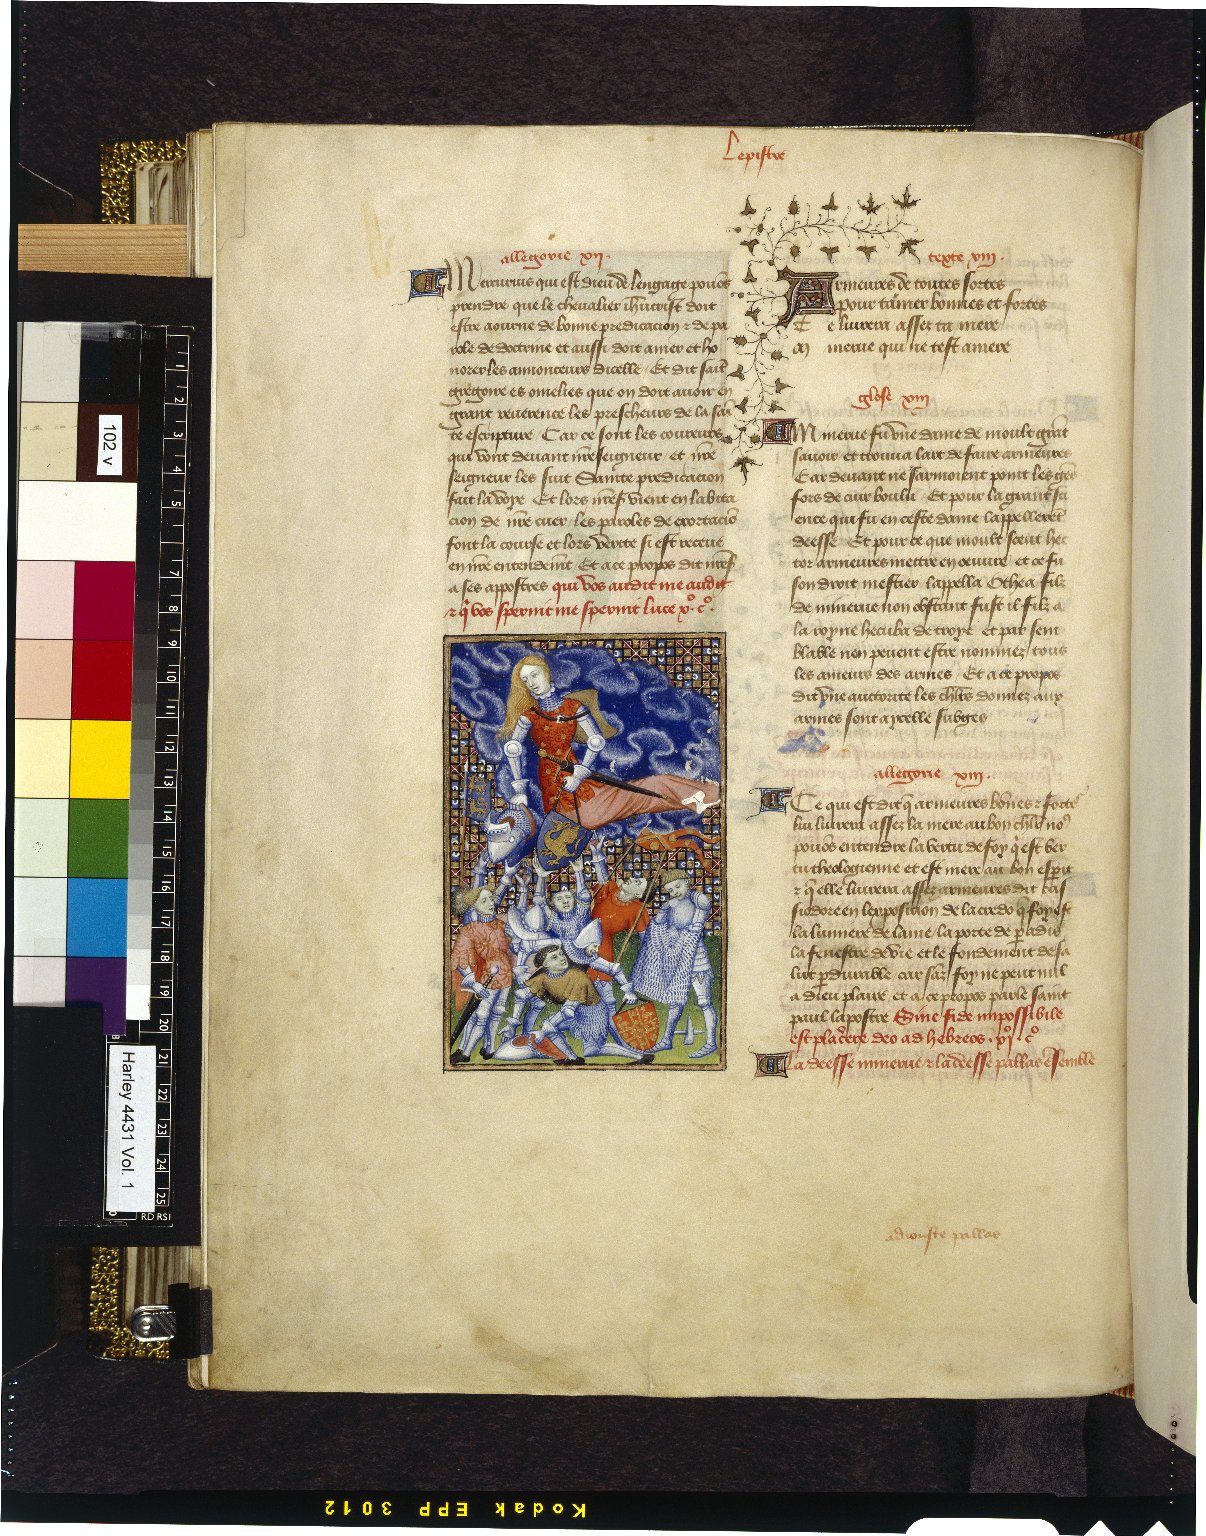 Lepistre
allegorie xii.
Mercurius qui est dieu de lengage pouōs
prendre que le chevalier ihūcrist doit
estre aourne de bonne predicacion ⁊ de pa
role de doctrine et aussi doit amer et ho
norer les annonceurs dicelle / Et dit saīt
gregoire es omelies que on doit avoir en
grant reverence les prescheurs de la sai
te escripture Car ce sont les coureurs
qui vont devant nr̄e seigneur / et nr̄e
seigneur les suit Sainte predicacion
fait la voye Et lors nr̄e s̄ vient en labita
cion de nr̄e cuer / les paroles de exortaciō
font la course et lors verite si est receue
en nr̄e entendemt̄ Et a ce propos dit nr̄e s̄
a ses appostres qui vos audit me audit
⁊ q̄ vos spernit me spernit luce x° c°.
texte xiii.
Armeures de toutes sortes
pour tamer bonnes et fortes
T e livrera assez ta mere
M inerve qui ne test amere
glose xiii
Minerve fu vne dame de moult grāt
savoir et trouva lart de faire armeures
Car devant ne sarmoient point les gēs
fors de cuir boulu / Et pour la grant sci
ence qui fu en ceste dame lappellerēt
deesse Et pour ce que moult sceut hec
tor armeures mettre en oeuvre et ce fu
son droit mestier lappella Othea filz
de minerve non obstant fust il filz a
la royne hecuba de troye et par sem
blable non peuent estre nommez tous
les ameurs des armes / Et a ce propos
dit vne auctorite les ch̄lrs donnez aux
armes sont a ycelle subges
allegorie xiii.
Ce qui est dit q̄ armeures bōnes ⁊ fortes
lui livrera assez la mere au bon ch̄lr no⁹
pouōs entendre la vertu de foy q̄ est ver
tu theologienne et est mere au bon esperit
⁊ q̄ elle livrera assez armeures dit cas
siodore en lexposicion de la credo q̄ foy est
la lumiere de lame / la porte de p̄adis
la fenestre de vie et le fondement de sa
lut p̄durable car sāz foy ne peut nul
a dieu plaire et a ce propos parle saint
paul lapostre Sine fide impossibile
est placere deo ad hebreos. xi° c°
La deesse minerve ⁊ la deesse pallas ēsemble
adiouste pallas
102 v
Harley 4431 Vol. 1
1
2
3
4
5
7
8
9
10
11
12
13
14
15
16
17
18
19
20
21
22
23
24
25
RD RSI
Kodak EPP 3012